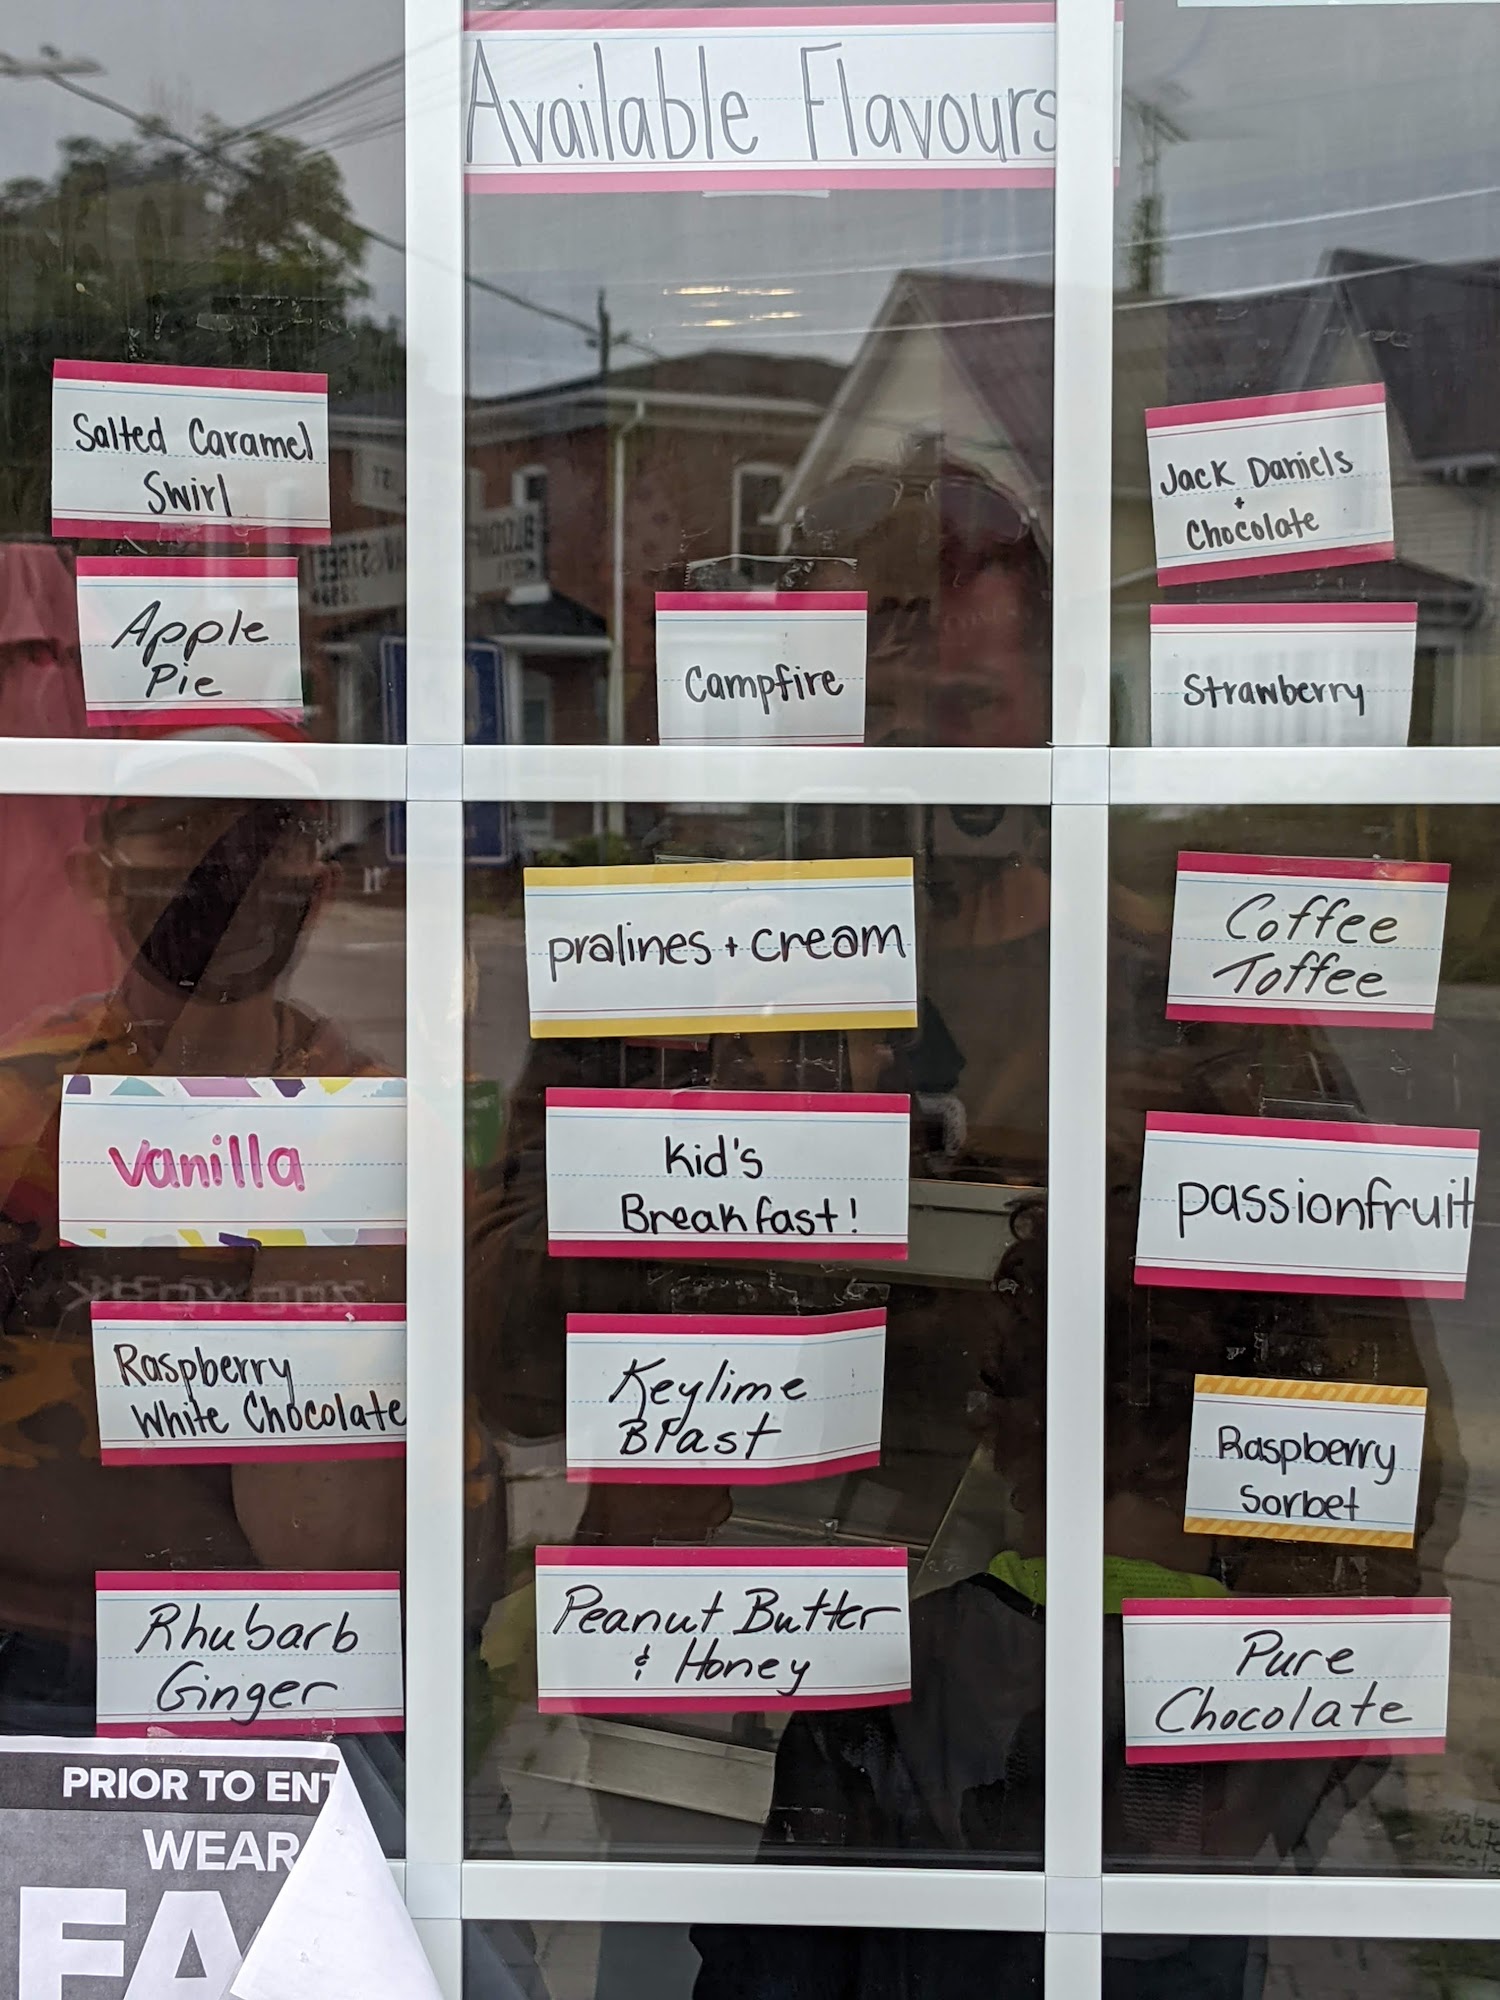 Available Flavours
Salted Caramel
Swirl
Apple
Pie
Campfire
Jack Daniels
+
Chocolate
Strawberry
vanilla
Raspberry
White Chocolate
Rhubarb
Ginger
pralines + cream
Kid's
Breakfast!
Keylime
Blast
Peanut Butter
& Honey
Coffee
Toffee
passionfruit
Raspberry
Sorbet
Pure
Chocolate
PRIOR TO ENT
WEAR
FA
ZOO YORK